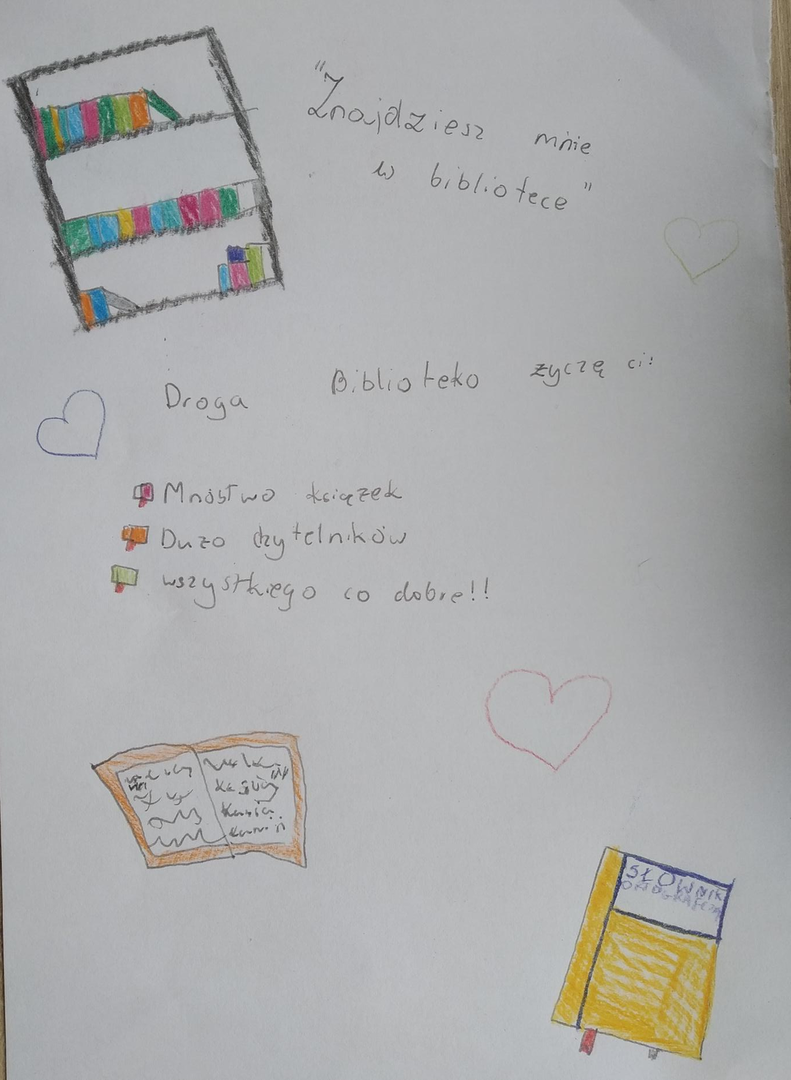 "Znajdziesz mnie
w bibliotece"
Droga Biblioteko życzę ci:
Mnóstwo książek
Dużo czytelników
wszystkiego co dobre!!
SŁOWNIK